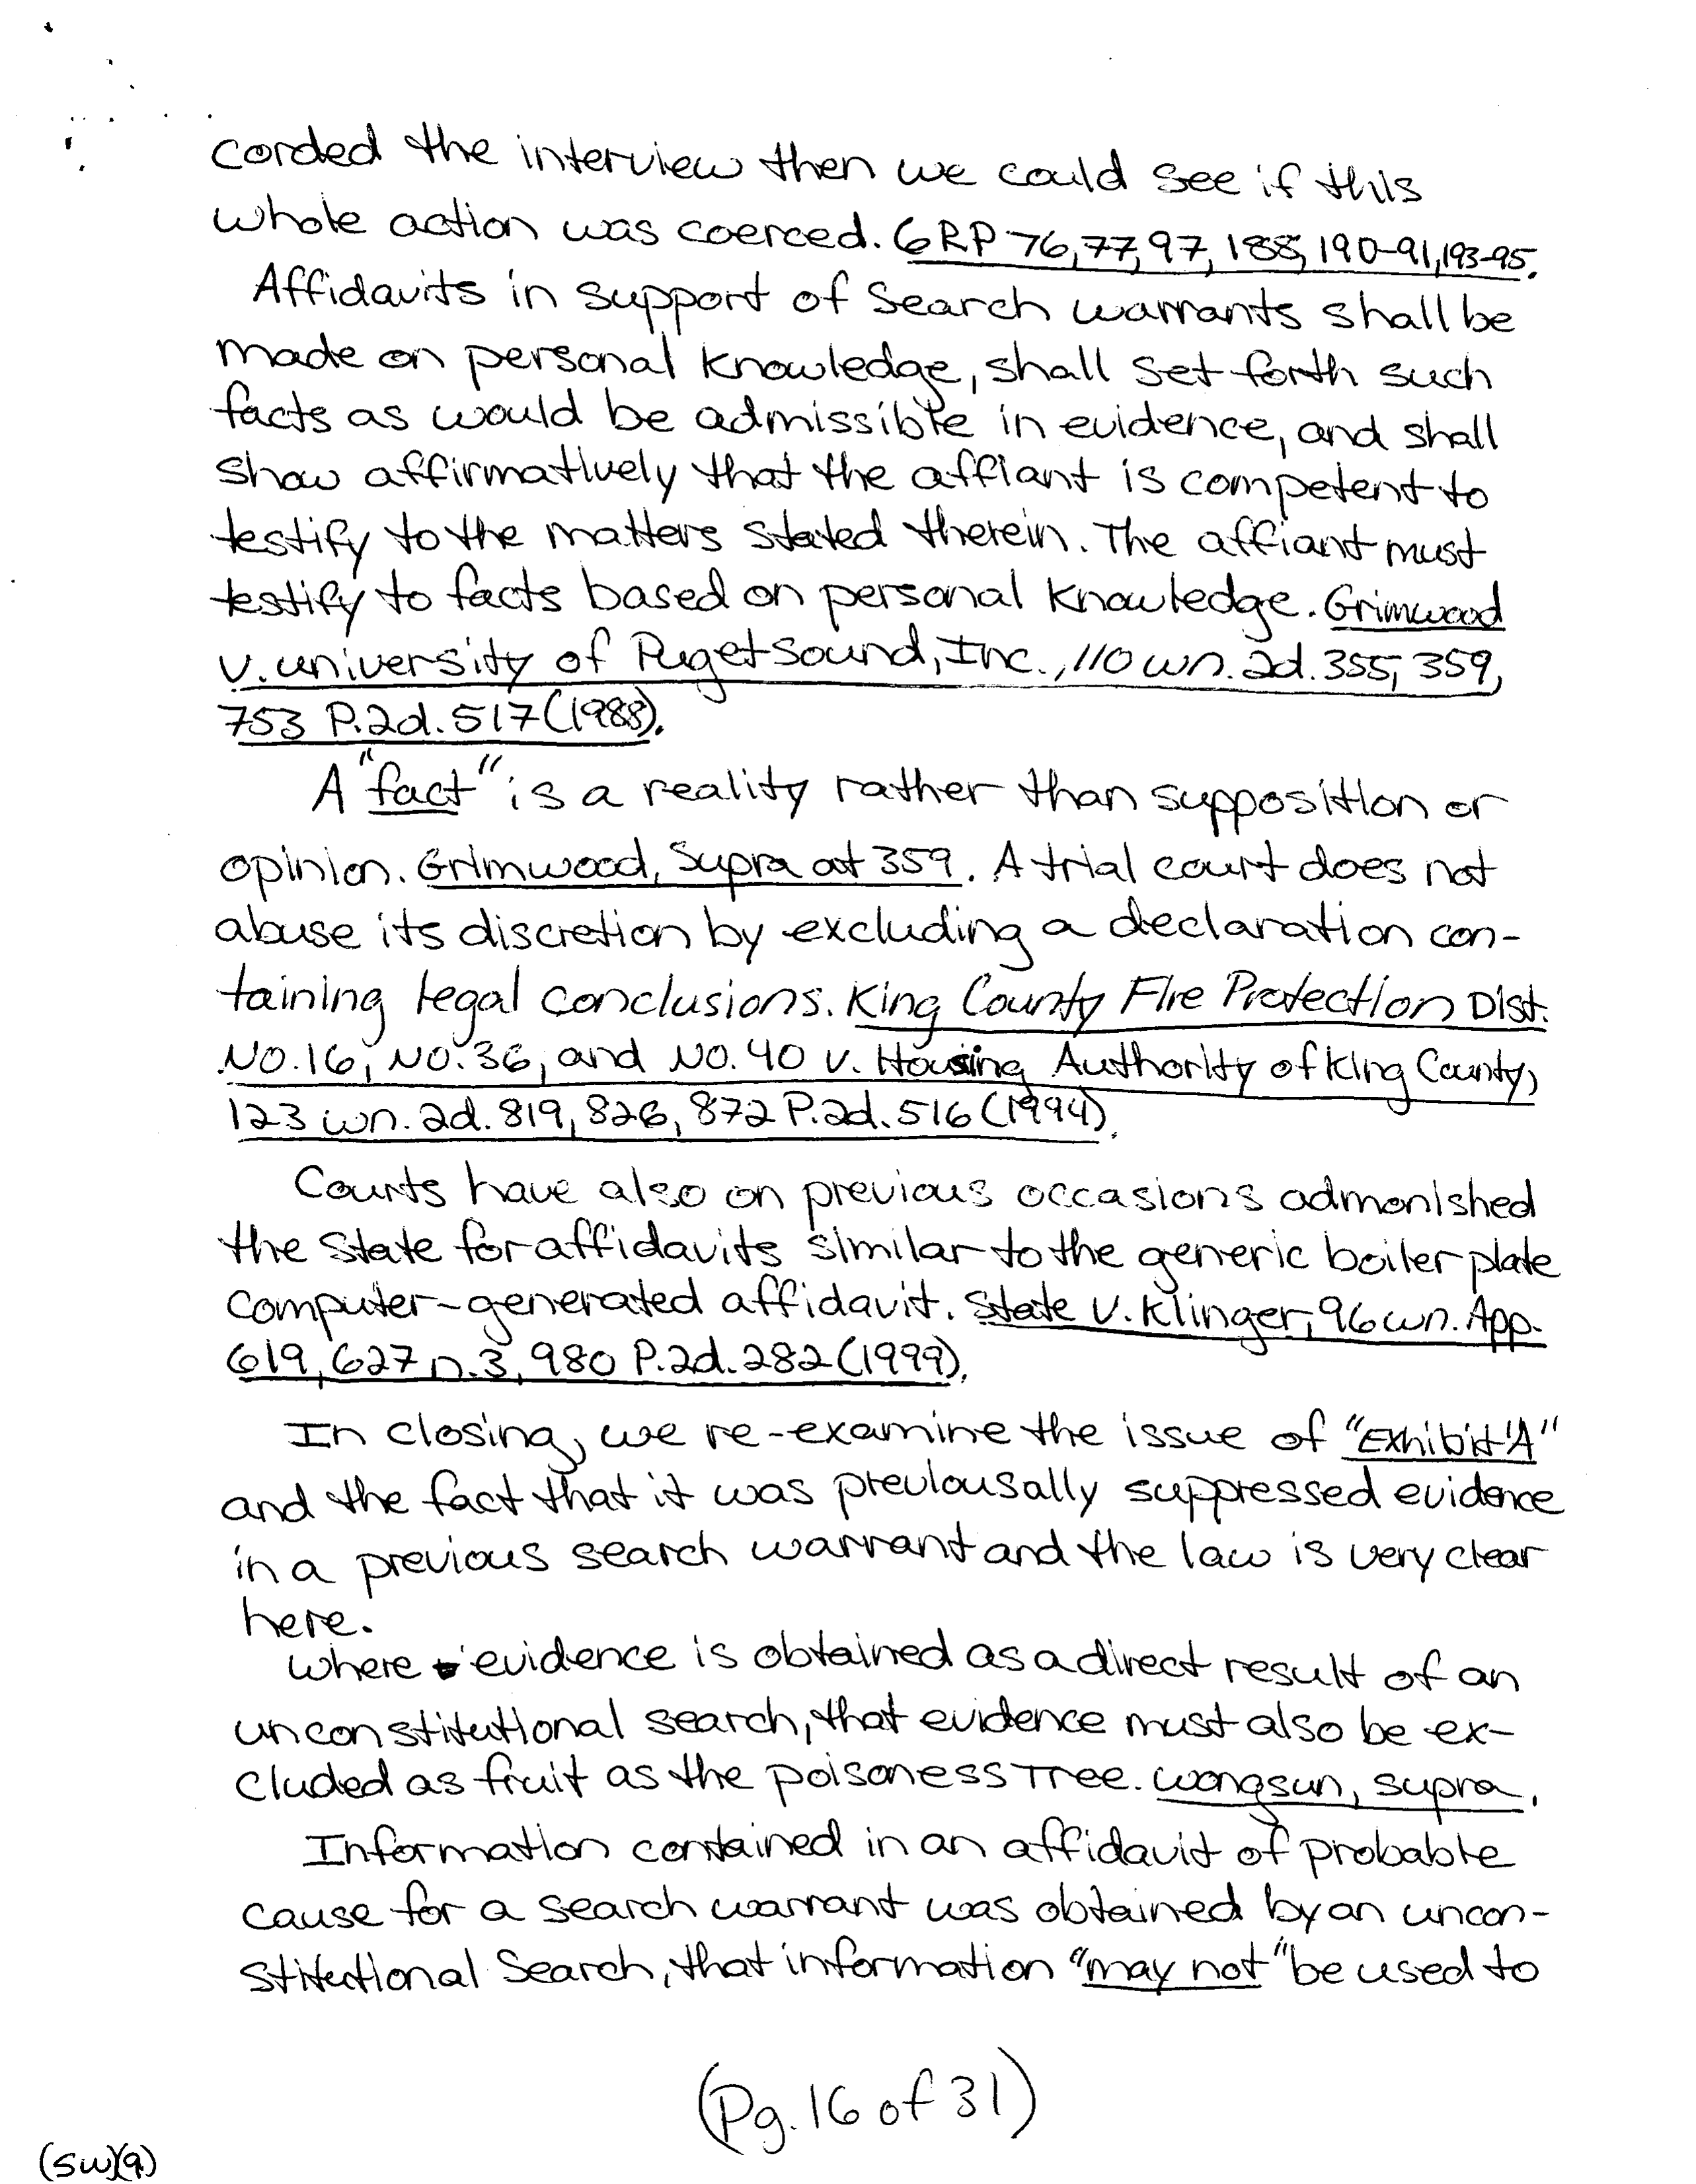 corded the interview then we could see if this
whole action was coerced. 6RP 76,77,97,188,190-91,193-95.
Affidavits in support of Search warrants shall be
made on personal knowledge, shall set forth such
facts as would be admissible in evidence, and shall
show affirmatively that the affiant is competent to
testify to the matters stated therein. The affiant must
testify to facts based on personal knowledge. Grimwood
v. university of Puget Sound, Inc., 110 wn. 2d. 355, 359,
753 P.2d. 517 (1988).
A "fact" is a reality rather than supposition or
opinion. Grimwood, Supra at 359. A trial court does not
abuse its discretion by excluding a declaration con-
taining legal conclusions. King County Fire Protection Dist.
No. 16, No. 36, and No. 40 v. Housing Authority of King County,
123 wn. 2d. 819, 826, 872 P.2d. 516 (1994).
Courts have also on previous occasions admonished
the State for affidavits similar to the generic boiler plate
computer-generated affidavit. State v. Klinger, 96 wn. App.
619, 627 n.3, 980 P.2d. 282 (1999).
In closing, we re-examine the issue of "Exhibit 'A"
and the fact that it was previousally suppressed evidence
in a previous search warrant and the law is very clear
here.
where evidence is obtained as a direct result of an
unconstitutional search, that evidence must also be ex-
cluded as fruit as the poisoness Tree. wongsun, supra.
Information contained in an affidavit of probable
cause for a search warrant was obtained by an uncon-
stitutional Search, that information "may not" be used to
(Pg. 16 of 31)
(SW)(9)